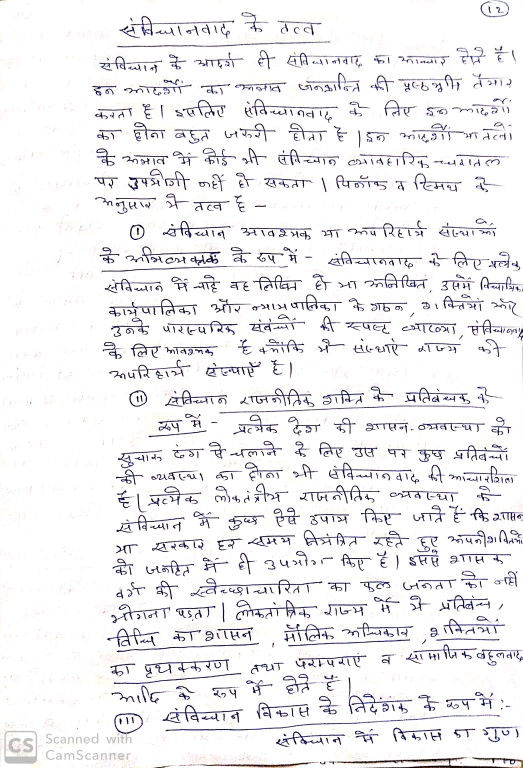 (12)
संविधानवाद के तत्व
संविधान के आदर्श ही संविधानवाद का आधार होते हैं।
इन आदर्शों का अभाव जनक्रान्ति की पृष्ठभूमि तैयार
करता है। इसलिए संविधानवाद के लिए इन आदर्शों
का होना बहुत जरूरी होता है। इन आदर्शों या तत्वों
के अभाव में कोई भी संविधान व्यावहारिक धरातल
पर उपयोगी नहीं हो सकता। पिनॉक व स्मिथ के
अनुसार ये तत्व है –
(i) संविधान आवश्यक या अपरिहार्य संस्थाओं
के अभिव्यक्तक के रूप में - संविधानवाद के लिए प्रत्येक
संविधान में चाहे वह लिखित हो या अलिखित, उसमें विधायिका
कार्यपालिका और न्यायपालिका के गठन, शक्तियों और
उनके पारस्परिक संबंधों की स्पष्ट व्याख्या, संविधानवाद
के लिए आवश्यक है क्योंकि ये संस्थाएं राज्य की
अपरिहार्य संस्थाएँ है।
(ii) संविधान राजनीतिक शक्ति के प्रतिबंधक के
रूप में - प्रत्येक देश की शासन-व्यवस्था को
सुचारू ढंग से चलाने के लिए उस पर कुछ प्रतिबंधों
की व्यवस्था का होना भी संविधानवाद की आधारशिला
है। प्रत्येक लोकतंत्रीय राजनीतिक व्यवस्था के
संविधान में कुछ ऐसे उपाय किए जाते हैं कि शासन
या सरकार हर समय नियंत्रित रहते हुए अपनी शक्तियों
को जनहित में ही उपयोग किए है। इससे शासक
वर्ग की स्वेच्छाचारिता का फल जनता को नहीं
भोगना पड़ता। लोकतांत्रिक राज्य में ये प्रतिबंध,
विधि का शासन, मौलिक अधिकार, शक्तियों
का पृथक्करण तथा परम्पराएं व सामाजिक बहुलवाद
आदि के रूप में होते हैं।
(iii) संविधान विकास के निदेशक के रूप में :-
संविधान में विकास का गुण
CS Scanned with
CamScanner